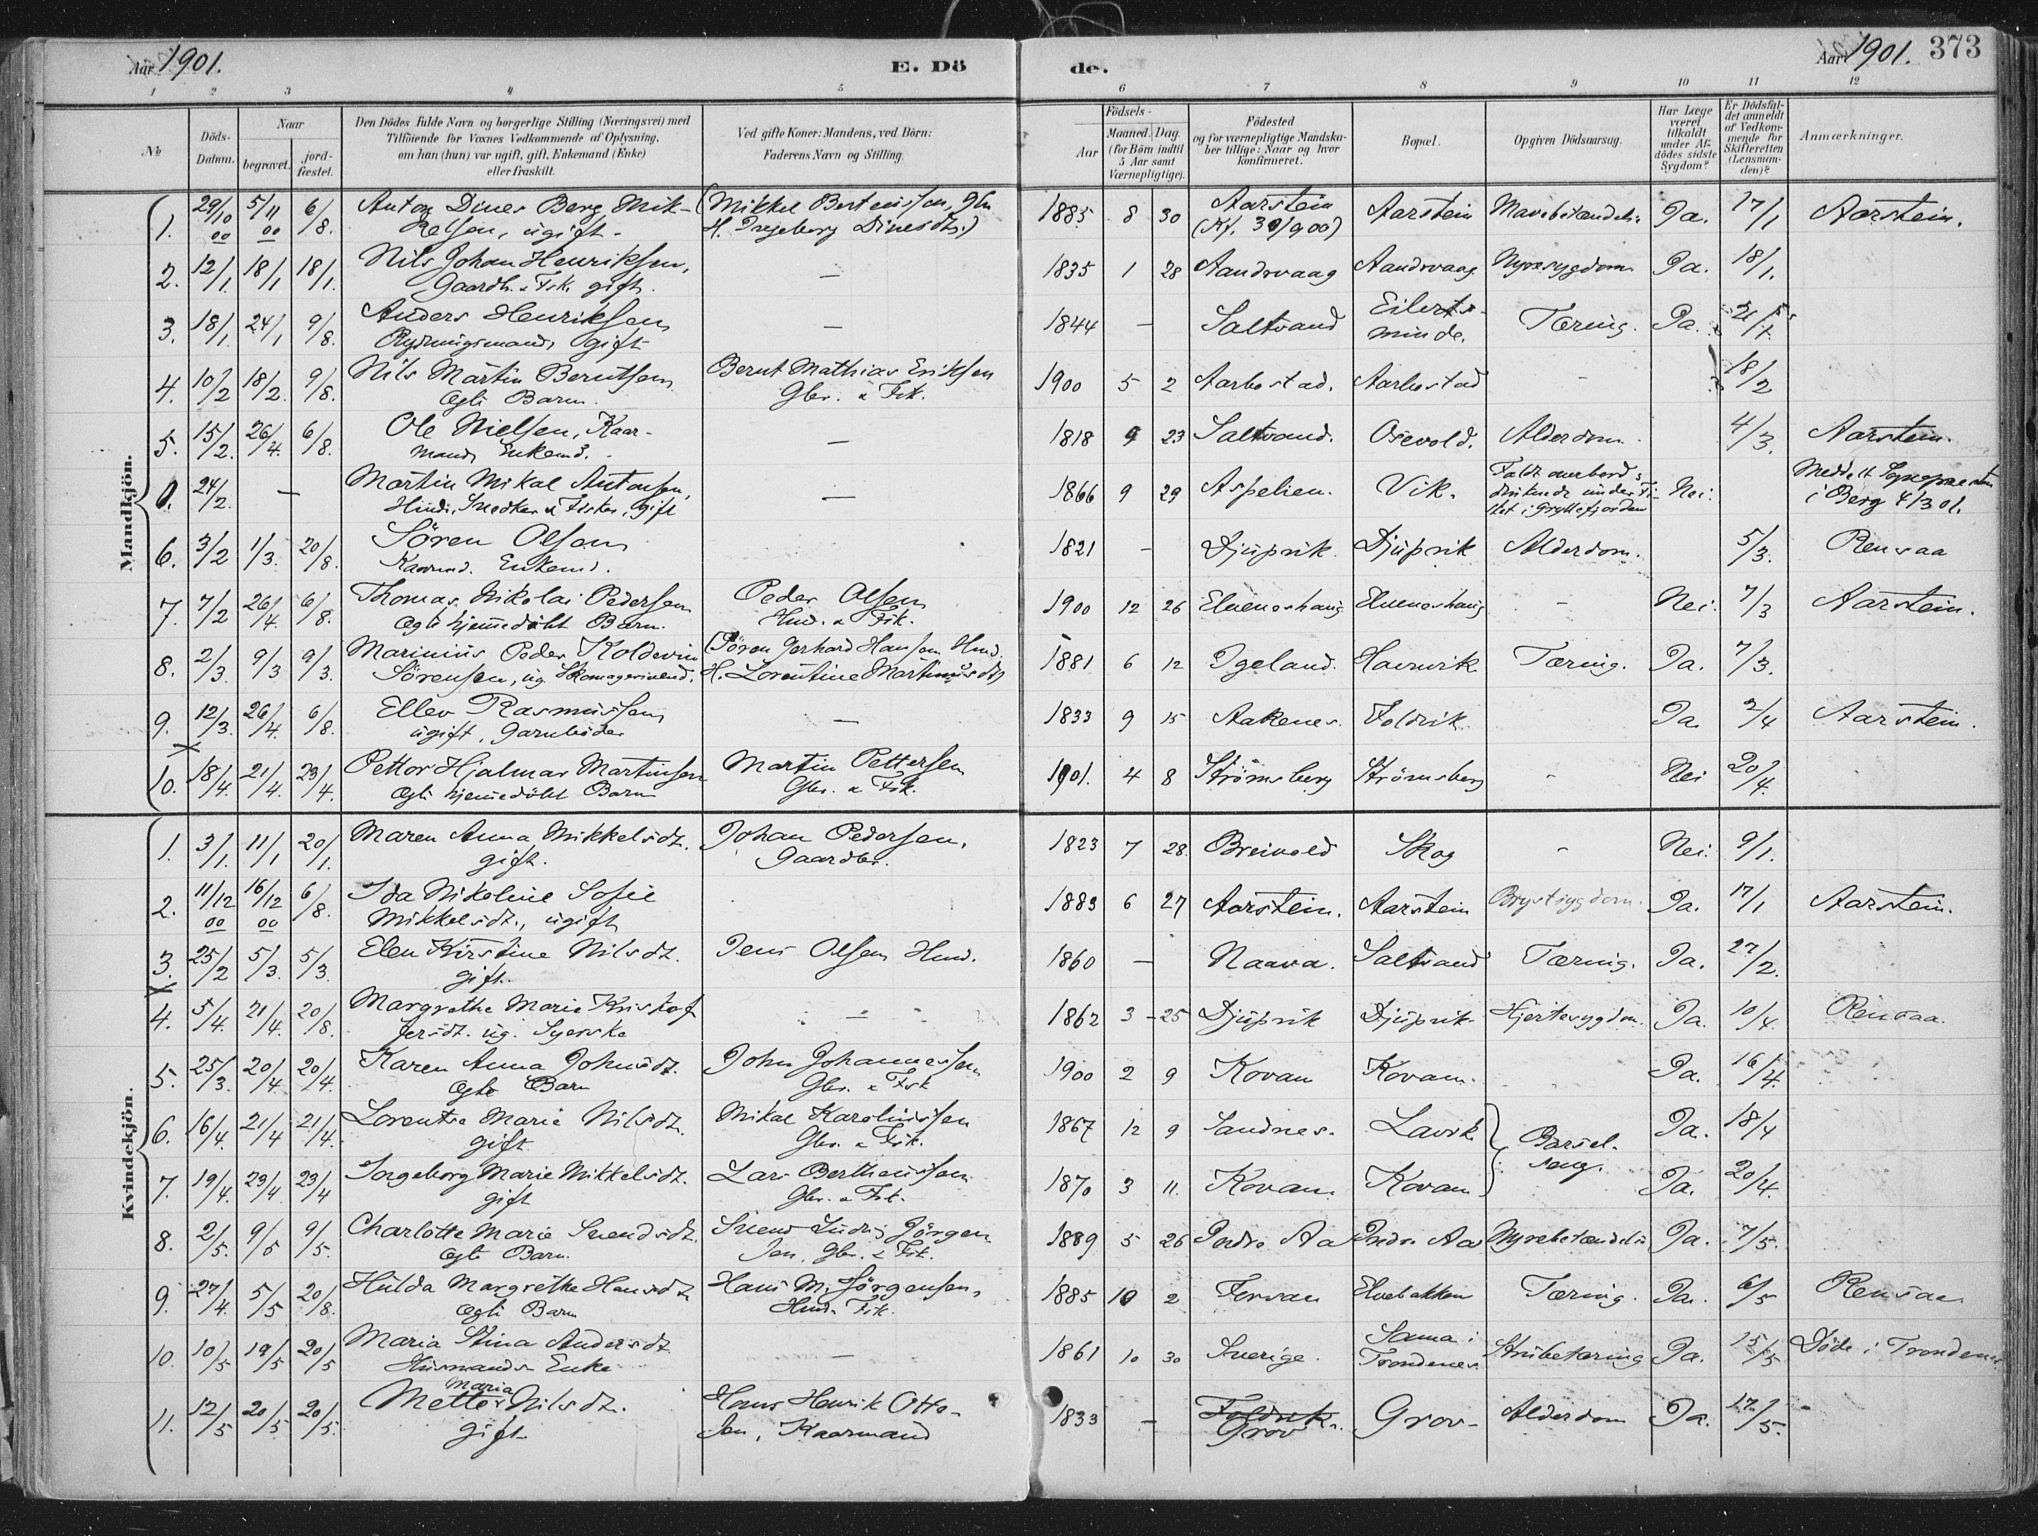 Aar 1901.
E. Dö
de.
Aar 1901.
373
1 2 3 4 5 6 7 8 9 10 11 12
No
Döds-Datum.
Naar
begravet.
jord-fæstet.
Den Dödes fulde Navn og borgerlige Stilling (Næringsvei) med
Tilföiende for Voxnes Vedkommende af Oplysning,
om han (hun) var ugift, gift, Enkemand (Enke)
eller fraskilt.
Ved gifte Koner: Mandens, ved Börn:
Faderens Navn og Stilling.
Födsels-
Aar
Maaned. Dag.
(for Börn indtil
5 Aar samt
Værnepligtige).
Födested
og for værnepligtige Mandska-
ber tillige: Naar og hvor
konfirmeret.
Bopæl.
Opgiven Dödsaarsag.
Har Læge
været
tilkaldt
under Af-
dödes sidste
Sygdom?
Er Dödsfal-
det anmeldt
af Vedkom-
mende for
Skifteretten
(Lensman-
den)?
Anmærkninger.
Mandkjön.
1. 29/10 00 5/11 00 6/8. Anton Dines Berg Mik- (Mikkel Bertensen, 1885 8 30 Aarstein Aarstein Mavebetændelse Ja. 17/1 Aarstein.
kelsen, ugift. H. Ingeborg Dinesdtr.) (Kf. 30/9 00)
2. 12/1. 18/1 18/1. Nils Johan Henriksen, — 1835 1 28 Aandsvaag Aandsvaag Nyresygdom Ja. 18/1.
Gaardb. & Fsk. gift.
3. 18/1. 24/1 9/8. Anders Henriksen — 1844 — Saltvand Eilerts- Tæring. Ja. 21/1
Rydningsmand, gift minde.
4. 10/2 18/2. 9/8. Nils Martin Berntsen Bernt Mathias Eriksen 1900 5 2 Aarbostad. Aarbostad - 18/2
ægte Barn. Gbr. & Fsk.
5. 15/2. 26/4. 6/8. Ole Nielsen, Kaar- — 1818 9 23 Saltvand. Osevold. Alderdom. 4/3. Aarstein.
mand Enkemd.
0. 24/2. — Martin Mikal Antonsen, — 1866 9 29 Aspelien. Vik. Faldt overbord & Nei. Medd. t. Sognepræsten
Hmd., Snedker & Fisker, gift druknede under Fi- i Berg 4/3 01.
sket i Gryllefjorden
6. 3/2 1/3. 20/8. Sören Olsen 1821 — Djupvik. Djupvik Alderdom. 5/3. Rensaa
Kaarmd. Enkemd.
7. 7/2 26/4. 6/8. Thomas Nikolai Pedersen Peder Olsen 1900 12 26 Elveneshaug Elveneshaug - Nei. 7/3 Aarstein.
ægte hjemmedöbt Barn. Hmd. & Fsk.
8. 2/3. 9/3 9/3 Marinius Peder Koldevin (Sören Gerhard Hansen Hmd. 1881 6 12 Igeland. Havnvik Tæring. Ja. 7/3.
Sörensen, ug. Skomagersvend. H. Lorentine Martinusdtr)
9. 12/3. 26/4. 6/8. Ellev Rasmussen — 1833 9 15 Aakenes. Foldvik. Ja. 2/4 Aarstein.
ugift, Garnböder
10. 18/4. 21/4. 23/4. Pettor Hjalmar Martinsen Martin Pettersen 1901. 4 8 Strömsberg Strömsberg - Nei 20/4.
ægte hjemmedöbt Barn Gbr. & Fsk.
Kvindekjön.
1. 3/1. 11/1 20/1. Maren Anna Mikkelsdt. Johan Pedersen, 1823 7 28. Breivold Skog - Nei. 9/1.
gift. Gaardbr.
2. 11/12 00 16/12 00 6/8. Ida Nikoline Sofie 1883 6 27 Aarstein. Aarstein Brystsygdom. Ja. 17/1 Aarstein.
Mikkelsdt., ugift
3. 25/2 5/3. 5/3. Elen Kirstine Nilsdt. Jens Olsen Hmd. 1860 — Naava. Saltvand Tæring. Ja. 27/2.
gift.
4. 5/4. 21/4. 20/8. Margrethe Marie Kristof- " — " 1862 3 25 Djupvik Djupvik Hjertesygdom. Ja. 10/4. Rensaa.
fersdt. ug. Syerske
5. 25/3. 20/4 20/4. Karen Anna Johnsdt. John Johannessen 1900 2 9 Kovan Kovan. Ja. 16/4.
ægte Barn Gbr. & Fsk
6. 16/4. 21/4 21/4. Lorentse Marie Nilsdt. Mikal Karolinssen 1867 12 9 Sandnes. Lavik Barsel- Ja. 18/4
gift. Gbr. & Fsk. seng.
7. 19/4. 23/4. 23/4 Ingeborg Marie Mikkelsdt. Lars Bertheussen 1870 3 11. Kovan. Kovan Ja. 20/4.
gift Gbr. & Fsk.
8. 2/5. 9/5 9/5. Charlotte Marie Svendsdt. Svend Ludv. Jörgen- 1889 5 26 Indre Aa Indre Aa Nyrebetændelse Ja. 7/5.
ægte Barn. sen, Gbr. & Fsk.
9. 27/4. 5/5 20/8. Hulda Margrethe Hansdt. Hans M. Jörgensen, 1885 10 2 Forvan Elvebakken Tæring. Ja. 6/5 Rensaa
ægte Barn Hmd. Fsk.
10. 10/5 19/5 20/5 Maria Stina Andersdt — 1861 10 30 Sverige. Sama i Strubetæring Ja. 15/5 Döde i Trondenes
Husmands Enke Trondenes
11. 12/5 20/5. 20/5. Mette Maria Nilsdt. Hans Henrik Otto- 1833 — Foldvik. Grov Alderdom Ja. 17/5.
gift. sen, Kaarmand Grov